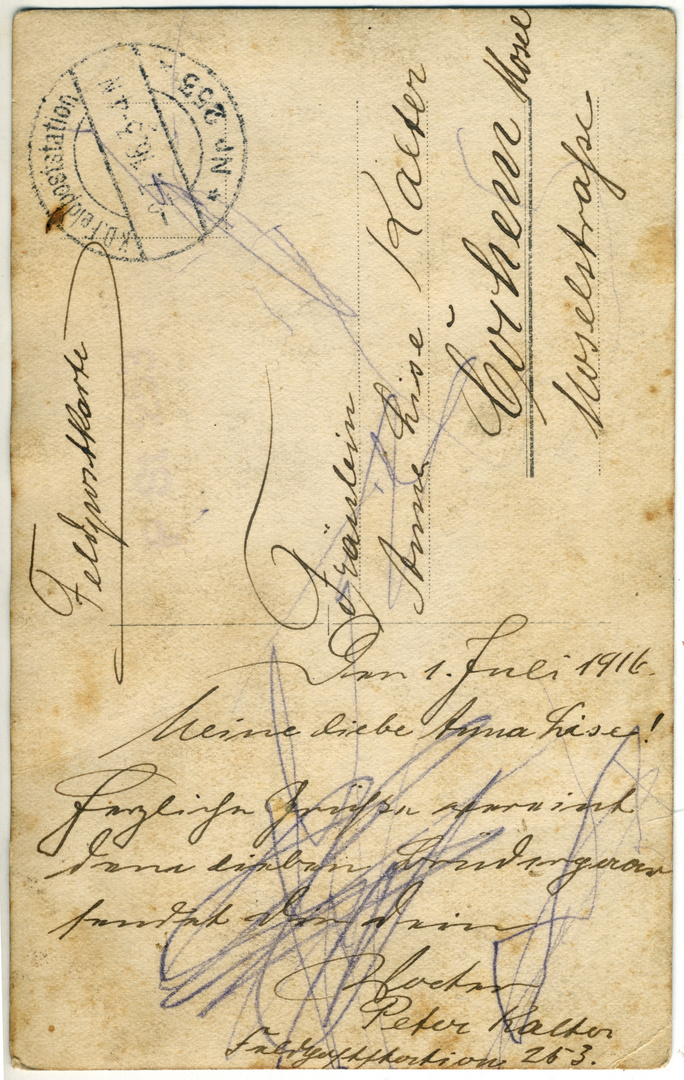 K.D. Feldpoststation * Nr. 253 *
16.3-4N
Feldpostkarte
Fräulein
Anna Lise Kalter
Cochem Mosel
Moselstraße
Den 1. Juli 1916.
Meine liebe Anna Lise!
Herzliche Grüße vereint
lieben
sendet Dir Dein
Vater
Peter Kalter
Feldpoststation 253.